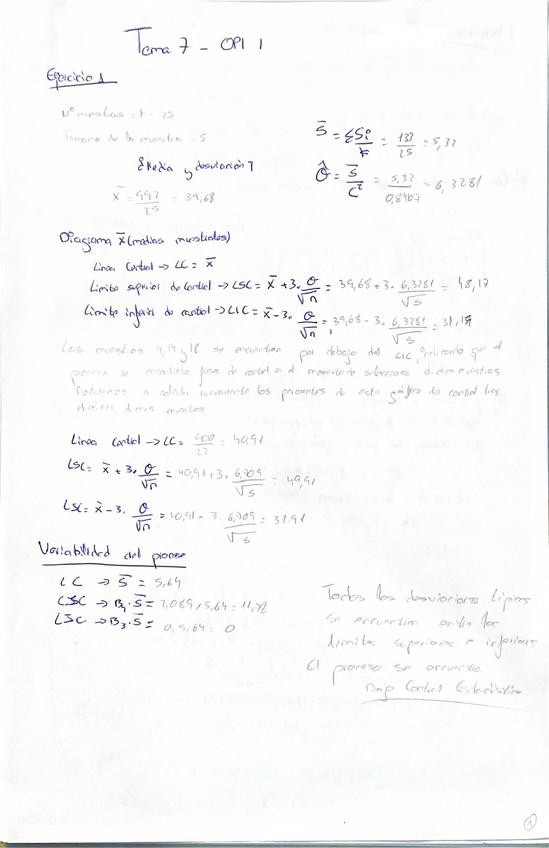 Tema 7 - OPI 1
Ejercicio 1
Nº muestras = k = 25
Tamaño de la muestra = 5
¿Media y desviación?
x̄ = 992/25 = 39,68
S̄ = ΣSi/k = 133/25 = 5,32
σ̂ = S̄/C2 = 5,32/0,8407 = 6,3281
Diagrama x̄ (medias muestrales)
Linea Central → LC = x̄
Limite superior de control → LSC = x̄ + 3·σ/√n = 39,68 + 3·6,3281/√5 = 48,17
Limite inferior de control → LIC = x̄ - 3·σ/√n = 39,68 - 3·6,3281/√5 = 31,18
Las muestras 4, 14 y 18 se encuentran por debajo del LIC, indicando que el
proceso se encontraba fuera de control en el momento de dichas muestras
a calcular nuevamente los parámetros de este gráfico de control
dichas muestras
Linea Central → LC = 900/22 = 40,91
LSC = x̄ + 3·σ/√n = 40,91 + 3·6,709/√5 = 49,91
LSC = x̄ - 3·σ/√n = 40,91 - 3·6,709/√5 = 31.91
Variabilidad del proceso
LC → S̄ = 5,64
LSC → B4·S̄ = 2,089 x 5,64 = 11,78
LSC → B3·S̄ = 0,5,64 = 0
Todas las desviaciones típicas
se encuentran entre los
límites superiores e inferiores
El proceso se encuentra
Bajo Control Estadístico
1